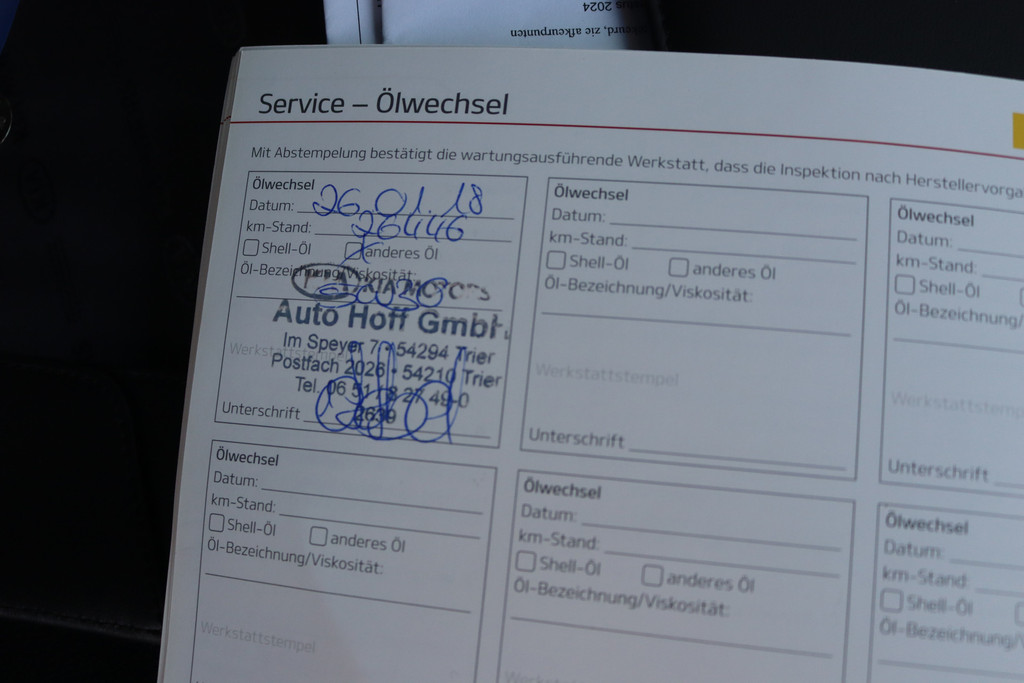 2024
zie afkeurpunten
Service – Ölwechsel
Mit Abstempelung bestätigt die wartungsausführende Werkstatt, dass die Inspektion nach Herstellervorga
Ölwechsel
Datum: 26.01.18
km-Stand: 26446
Shell-Öl anderes Öl
Öl-Bezeichnung/Viskosität:
KIA MOTORS
Auto Hoff GmbH
Im Speyer 7 · 54294 Trier
Werkstattstempel
Postfach 2026 · 54210 Trier
Tel. 06 51 / 8 27 49-0
Unterschrift 2639
Ölwechsel
Datum:
km-Stand:
Shell-Öl anderes Öl
Öl-Bezeichnung/Viskosität:
Werkstattstempel
Unterschrift
Ölwechsel
Datum:
km-Stand:
Shell-Öl
Öl-Bezeichnung/
Werkstattstemp
Unterschrift
Ölwechsel
Datum:
km-Stand:
Shell-Öl anderes Öl
Öl-Bezeichnung/Viskosität:
Werkstattstempel
Ölwechsel
Datum:
km-Stand:
Shell-Öl anderes Öl
Öl-Bezeichnung/Viskosität:
Ölwechsel
Datum:
km-Stand:
Shell-Öl
Öl-Bezeichnung/